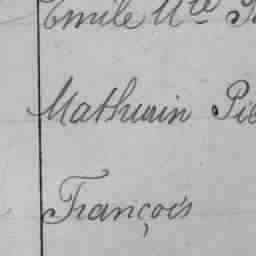 Emile
Mathurin
François